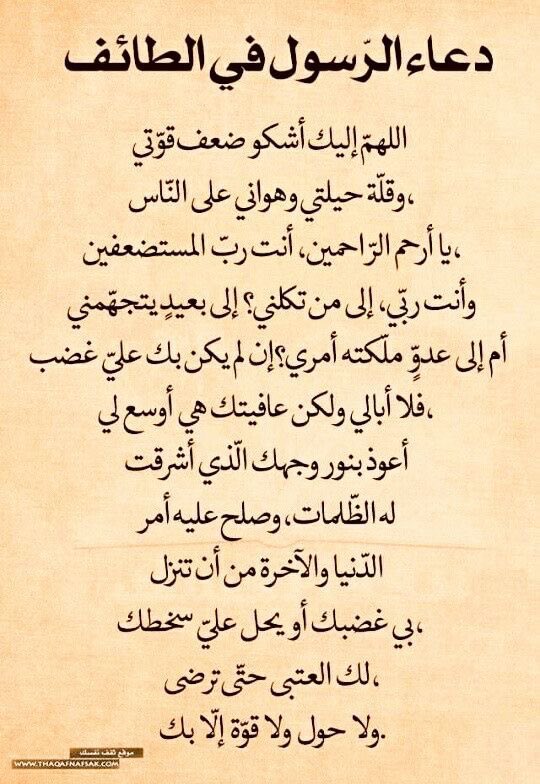 دعاء الرّسول في الطائف
اللهمّ إليك أشكو ضعف قوّتي
،وقلّة حيلتي وهواني على النّاس
،يا أرحم الرّاحمين، أنت ربّ المستضعفين
وأنت ربّي، إلى من تكلني؟ إلى بعيدٍ يتجهّمني
أم إلى عدوٍّ ملّكته أمري؟ إن لم يكن بك عليّ غضب
،فلا أبالي ولكن عافيتك هي أوسع لي
أعوذ بنور وجهك الّذي أشرقت
له الظّلمات، وصلح عليه أمر
الدّنيا والآخرة من أن تنزل
،بي غضبك أو يحل عليّ سخطك
،لك العتبى حتّى ترضى
.ولا حول ولا قوّة إلّا بك
موقع ثقف نفسك
WWW.THAQAFNAFSAK.COM